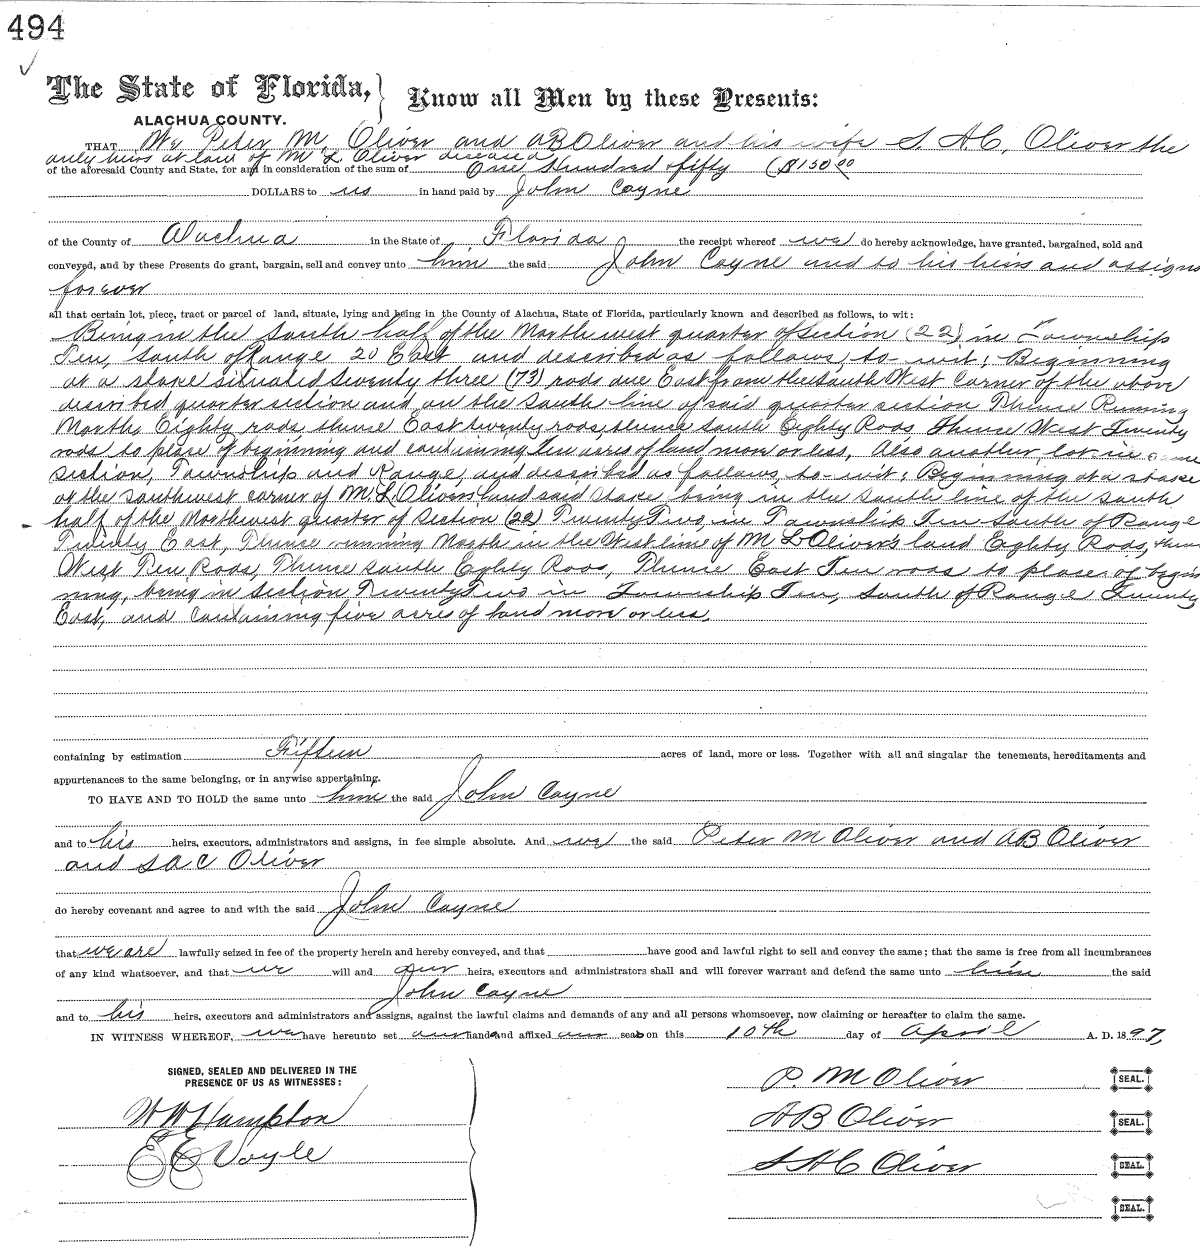 494
The State of Florida, } Know all Men by these Presents:
ALACHUA COUNTY.
THAT We Peter M, Oliver and AB Oliver and his wife S. A C, Oliver the
only heirs at law of M L Oliver deceased
of the aforesaid County and State, for and in consideration of the sum of One Hundred & fifty ($150 00
DOLLARS to us in hand paid by John Cayne
of the County of Alachua in the State of Florida the receipt whereof we do hereby acknowledge, have granted, bargained, sold and
conveyed, and by these Presents do grant, bargain, sell and convey unto him the said John Cayne and to his heirs and assigns
forever
all that certain lot, piece, tract or parcel of land, situate, lying and being in the County of Alachua, State of Florida, particularly known and described as follows, to wit:
Being in the South half of the North west quarter of Section (22) in Township
Ten, South of Range 20 East and described as follows, to wit; Beginning
at a stake situated Seventy three (73) rods due East from the South West Corner of the above
described quarter section and on the South line of said quarter section Thence Runing
North, Eighty rods, thence East twenty rods, thence South Eighty Rods Thence West Twenty
rods to place of beginning and containing Ten acres of land more or less, Also another lot in same
section, Township and Range, and described as follows, to wit; Beginning at a stake
at the southwest corner of M. L. Olivers land said stake being in the South line of the South
half of the Northwest quarter of Section (22) Twenty Two, in Township Ten South of Range
Twenty East, Thence running North in the West line of M L Oliver's land Eighty Rods,
West Ten Rods, Thence South Eighty Rods, Thence East Ten rods to place of begin
ning, being in Section Twenty Two in Township Ten, South of Range Twenty
East, and Containing five acres of land more or less,
containing by estimation Fifteen acres of land, more or less. Together with all and singular the tenements, hereditaments and
appurtenances to the same belonging, or in anywise appertaining.
TO HAVE AND TO HOLD the same unto him the said John Cayne
and to his heirs, executors, administrators and assigns, in fee simple absolute. And we the said Peter M Oliver and AB Oliver
and S A C Oliver
do hereby covenant and agree to and with the said John Cayne
that we are lawfully seized in fee of the property herein and hereby conveyed, and that have good and lawful right to sell and convey the same; that the same is free from all incumbrances
of any kind whatsoever, and that we will and our heirs, executors and administrators shall and will forever warrant and defend the same unto him the said
John Cayne
and to his heirs, executors and administrators and assigns, against the lawful claims and demands of any and all persons whomsoever, now claiming or hereafter to claim the same.
IN WITNESS WHEREOF, we have hereunto set our hands and affixed our seals on this 10th day of April A. D. 1897,
SIGNED, SEALED AND DELIVERED IN THE
PRESENCE OF US AS WITNESSES:
P. M Oliver SEAL.
W W Hampton
A B Oliver SEAL.
E E Voyle
S A C Oliver SEAL.
SEAL.